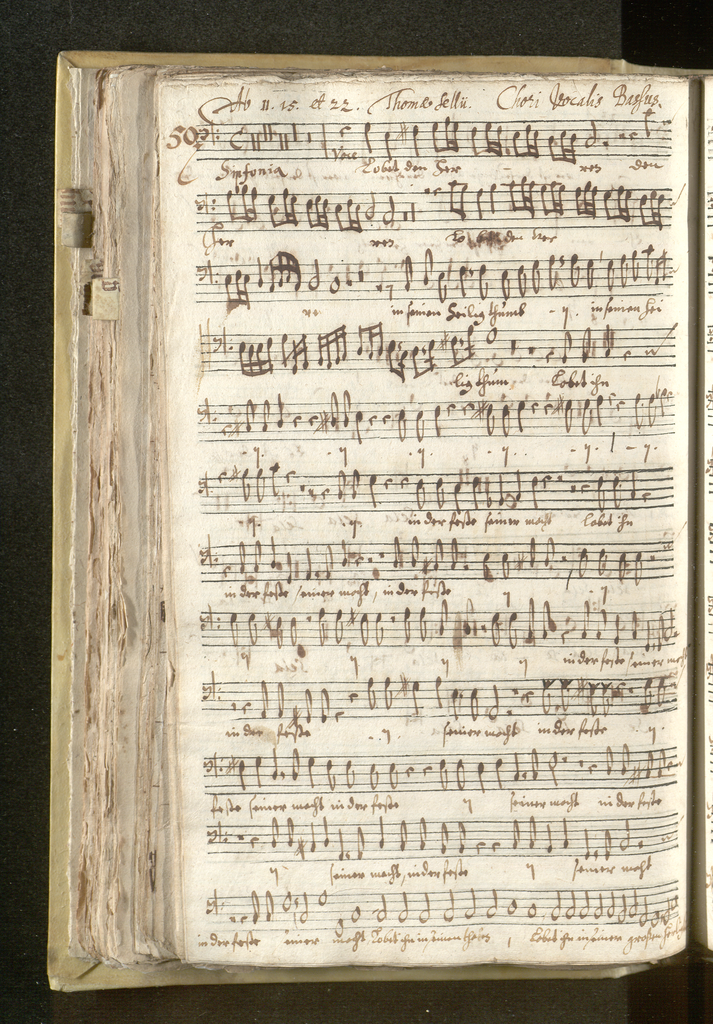 Ab 11. 15. et 22. Thomæ Sellii. Chori Vocalis Bassus.
50
Sinfonia Voce Lobet den Her - ren den
Her ren Lobet den Her
ren in seinen Heiligthumb - ij. in seinen Hei
ligthum, Lobet ihn
- ij. ij. - ij. - ij. - ij. - ij.
ij. ij. in der feste seiner macht lobet ihn
in der feste seiner macht, in der feste ij ij
ij ij ij ij in der feste seiner macht
in der feste - ij. seiner macht in der feste ij.
feste seiner macht in der feste ij seiner macht in der feste
ij seiner macht, in der feste ij seiner macht
in der feste seiner macht Lobet ihn in seinen thaten, Lobet ihn in seiner grossen